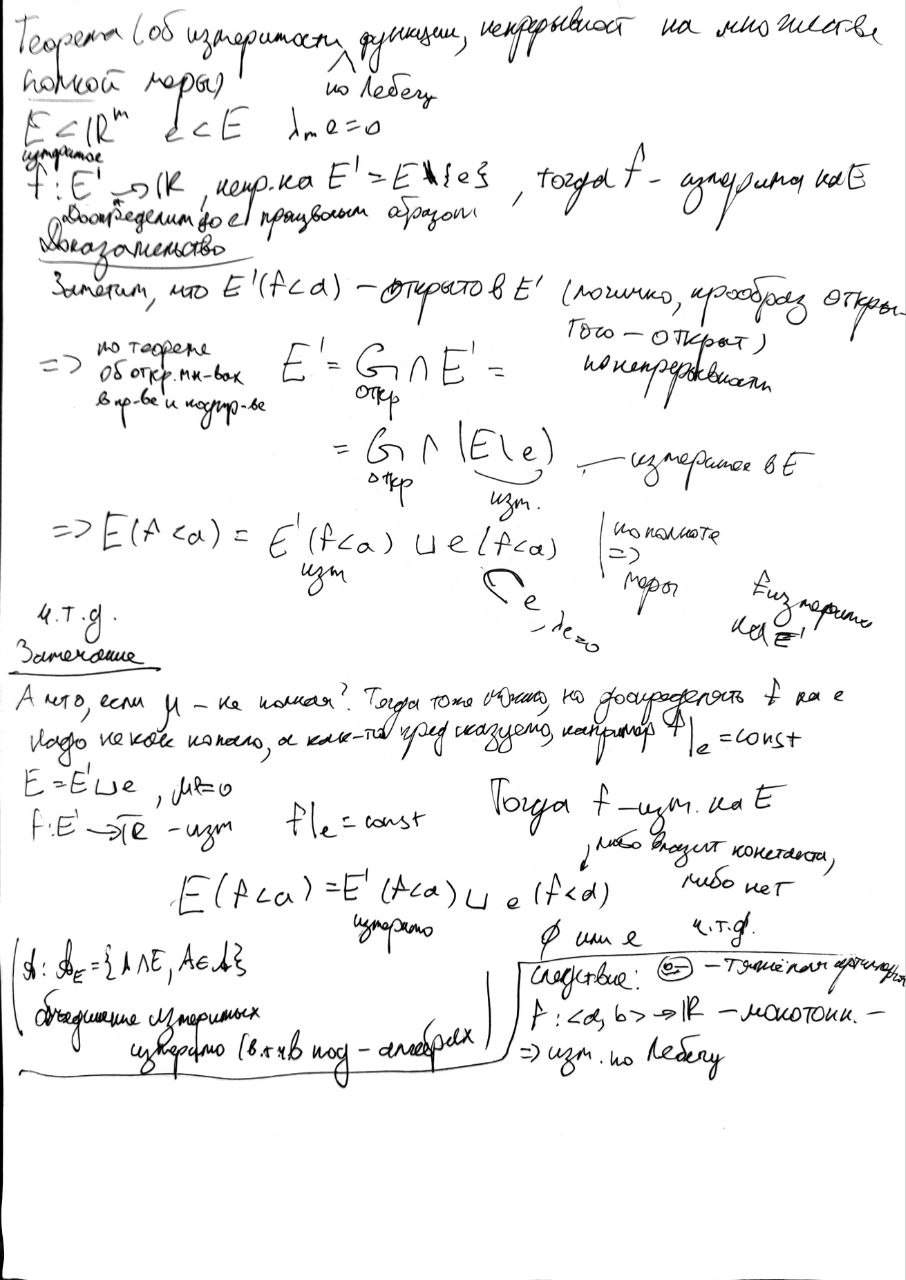 Теорема (об измеримости функции, непрерывност на множестве
по Лебегу
полной меры)
E ⊂ ℝᵐ e ⊂ E λₘ e = 0
измеримое
f: E' → ℝ, непр. на E' = E \ {e}, тогда f – измерима на E
Доопределим до e произвольным образом
Доказательство
Заметим, что E'(f<a) – открыто в E' (логично, прообраз откры-
того – открыт)
по непрерывности
=> по теореме
об откр. мн-вах
в пр-ве и подпр-ве
E' = G ∩ E' =
откр
= G ∩ (E \ e) – измеримое в E
откр изм.
=> E(f<a) = E'(f<a) ⊔ e(f<a)
изм
⊂ e, λe=0
по полноте
=>
меры
f измерима
на E'
ч.т.д.
Замечание
А что, если μ – не полная? Тогда тоже можно, но доопределять f на e
надо не как попало, а как-то предсказуемо, например f|ₑ = const
E = E' ⊔ e, μe=0
f: E' → ℝ̅ – изм f|ₑ = const Тогда f – изм. на E
либо входит константа,
либо нет
E(f<a) = E'(f<a) ⊔ e(f<a)
измеримо
∅ или e
ч.т.д.
𝔸: 𝔸_E = {A∩E, A∈𝔸}
объединение измеримых
измеримо (в т.ч в под-алгебрах
Следствие: – тяжёлая артиллерия
f: <a, b> → ℝ – монотонн. –
=> изм. по Лебегу